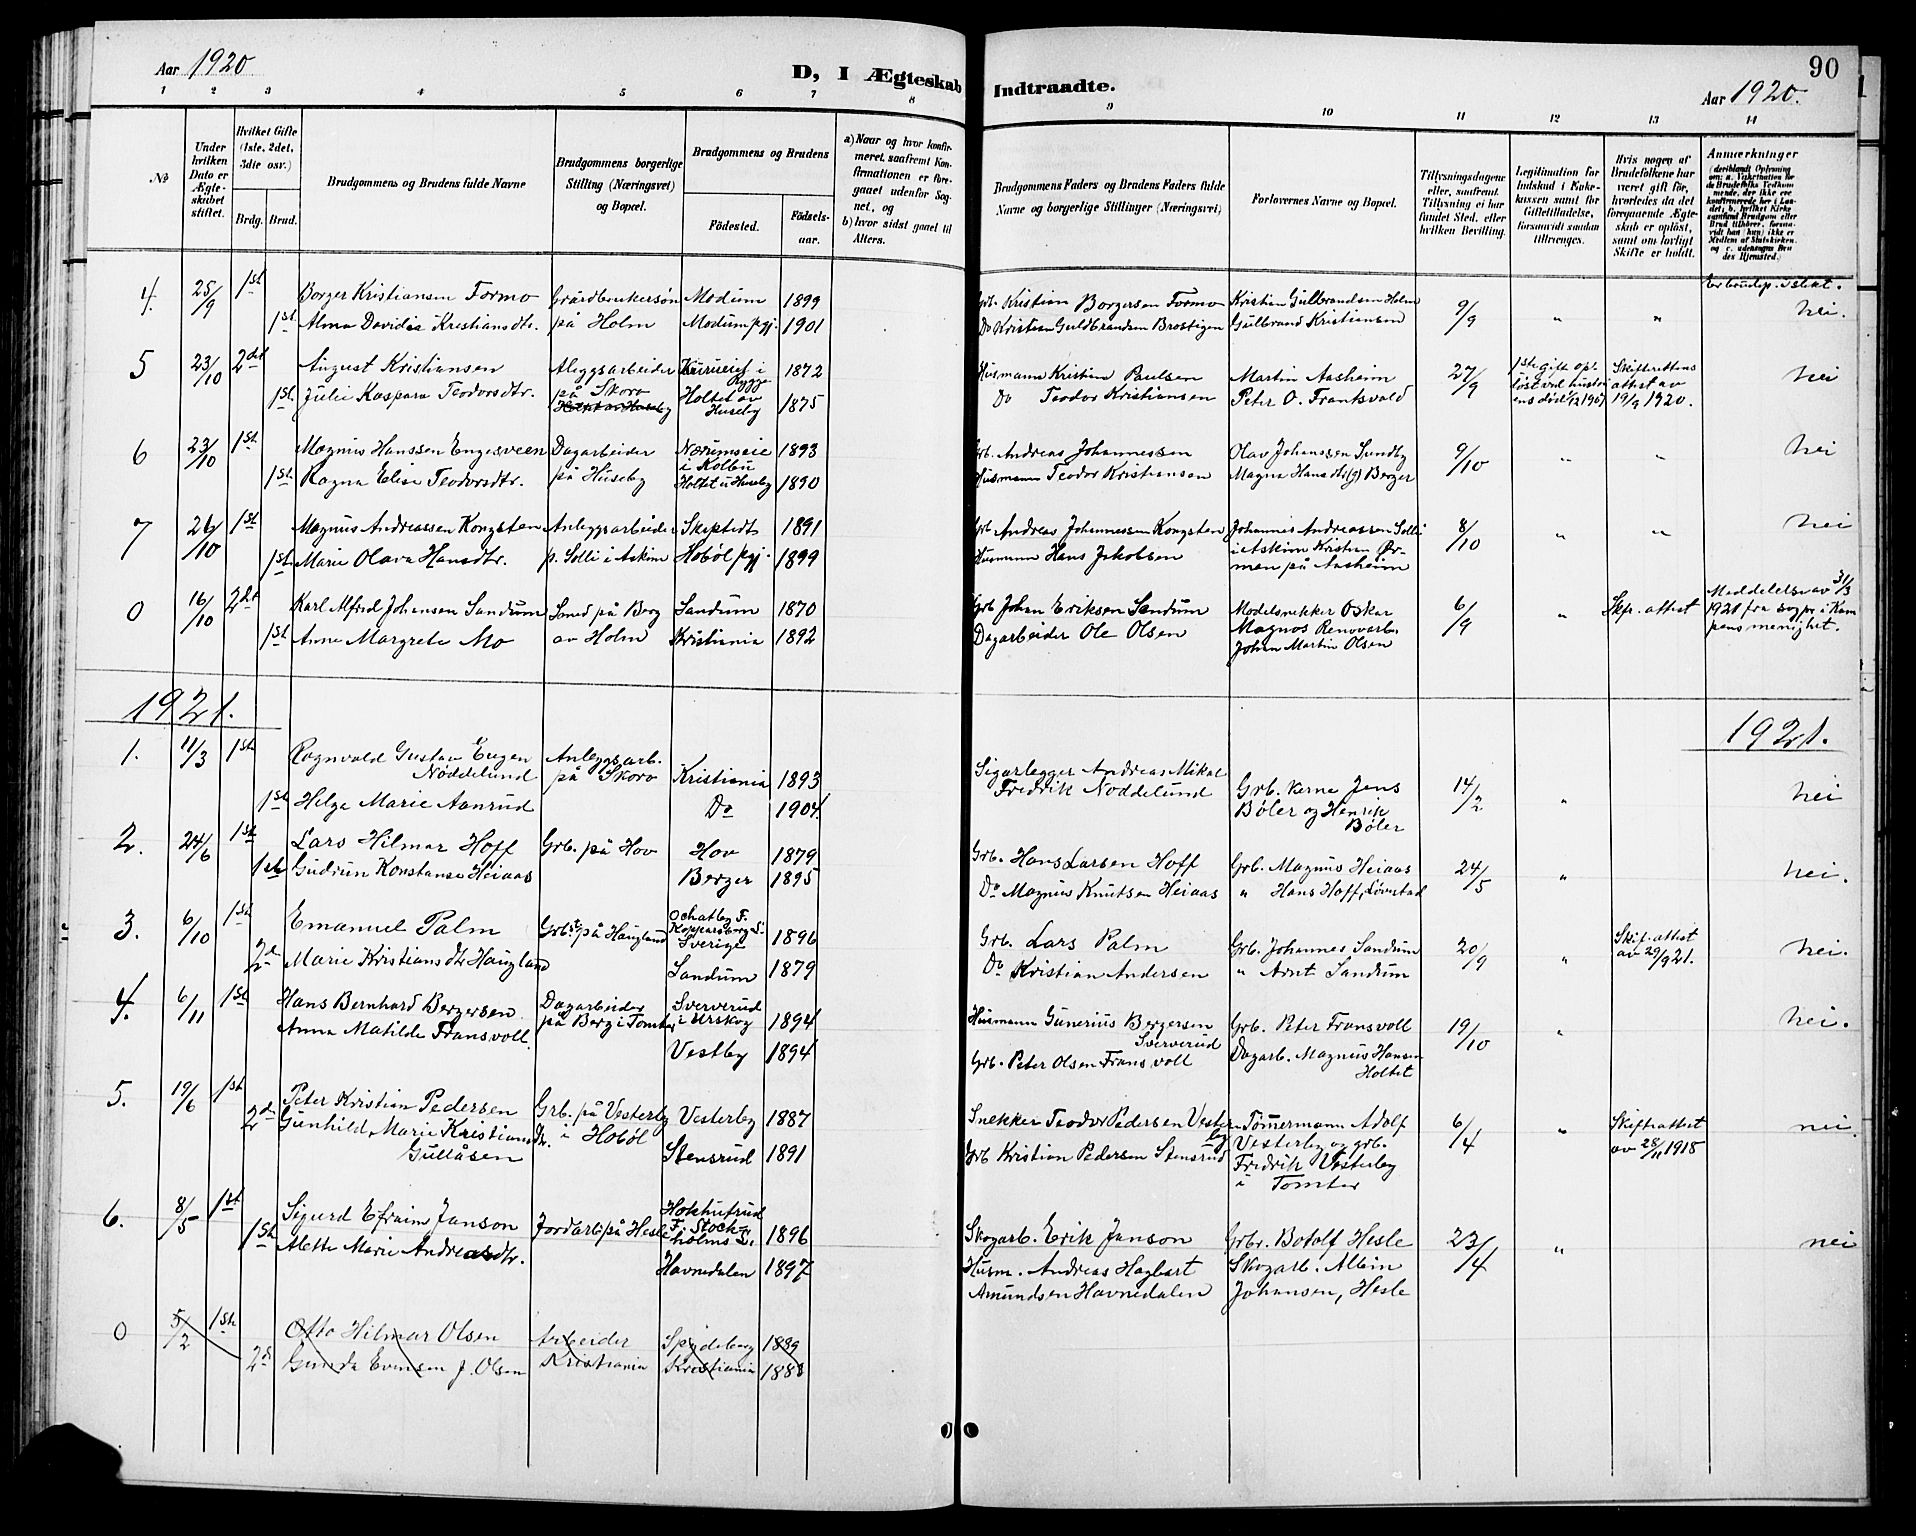 Aar 1920
D, I Ægteskab Indtraadte.
90
Aar 1920.
1 2 3 4 5 6 7 8 9 10 11 12 13 14
No
Under hvilken Dato er Ægteskabet stiftet.
Hvilket Gifte (1ste, 2det, 3die osv.)
Brdg. Brud.
Brudgommens og Brudens fulde Navne
Brudgommens borgerlige Stilling (Næringsvei) og Bopæl.
Brudgommens og Brudens
Fødested.
Fødselsaar.
a) Naar og hvor konfirmeret, saafremt Konfirmationen er foregaaet udenfor Sognet, og
b) hvor sidst gaaet til Alters.
Brudgommens Faders og Brudens Faders fulde Navne og borgerlige Stillinger (Næringsvei)
Forlovernes Navne og Bopæl.
Tillysningsdagene eller, saafremt Tillysning ei har fundet Sted, efter hvilken Bevilling.
Legitimation for Indskud i Enkekassen samt for Giftetilladelse, forsaavidt saadan tiltrænges.
Hvis nogen af Brudefolkene har været gift før, hvorledes da det foregaaende Ægteskab er opløst, samt om lovligt Skifte er holdt.
Anmærkninger
4. 25/9 1st Borger Kristiansen Formo Gårdbrukersøn Modum 1899 Grb. Kristian Borgersen Formo Kristian Gulbrandsen Holm 9/9 " " nei.
1st Alma Davidia Kristiansdtr. på Holm Modum pgj. 1901 Do Kristian Guldbrandsen Brostigen Gulbrand Kristiansen
5 23/10 2det August Kristiansen Anleggsarbeider i Rygge 1872 Husmann Kristian Paulsen Martin Aasheim 27/9 1ste gift opløst ved hustruens død Skifterettens attest av 19/9 1920. nei
1st Julie Kaspara Teodorsdtr. på Skoro Holtet av Huseby 1875 Do Teodor Kristiansen Peter O. Fransvold
6 23/10 1st Magnus Hanssen Engesveen Dagarbeider Nærumseie i Kolbu 1893 Grb. Andreas Johannessen Olav Johanssen Sundby 9/10 " " nei
1st Ragna Elise Teodorsdtr. på Huseby Holtet u/Huseby 1890 Husmann Teodor Kristiansen Magna Hansdtr (g) Berger
7 26/10 1st Magnus Andreassen Kongsten Anleggsarbeider Skiptvedt 1891 Grb. Andreas Johannessen Kongsten Johannes Andreassen Solli 8/10 " " nei
1st Marie Olava Hansdtr. p. Solli i Askim Hobøl pgj. 1899 Husmann Hans Jakobsen i Askim Kristian Ørman på Aasheim
0 16/10 2det Karl Alfred Johansen Sandum Smed på Berg Sandum 1870 Grb Johan Eriksen Sandum Modelsnekker Oskar 6/9 " Skp. attest Meddelelse av 31/3 1921 fra sogpr. i Kampens menighet.
1st Anne Margrete Mo av Holm Kristiania 1892 Dagarbeider Ole Olsen Magnos Renovarb. Johan Martin Olsen
1921. 1921.
1. 11/3 1st Ragnvald Gustav Eugen Nøddelund Anleggsarb. på Skoro Kristiania 1893 Sigarlegger Andreas Mikal Fredrik Nøddelund Grb. Jens 14/2 " nei
1st Helga Marie Aanrud Do 1904 Bøler og Henrik Bøler
2. 24/6 1st Lars Hilmar Hoff Grb. på Hov Hov 1879 Grb. Hans Larsen Hoff Grb. Magnus Heiaas 24/5 " nei.
1st Gudrun Konstanse Heiaas Berger 1895 Do Magnus Knutsen Heiaas " Hans Hoff, Løvestad
3. 6/10 1st Emanuel Palm Grb. på Haugland Kopparsberg L. Sverige 1896 Grb. Lars Palm Grb. Johannes Sandum 20/9 " Skif. attest av 29/9 21. nei.
2d Marie Kristiansdtr Haugland Sandum 1879 Do Kristian Andersen " Arnt Sandum
4. 6/11 1st Hans Bernhard Bergersen Dagarbeider på Berg i Tomter Sververud i Urskog 1894 Husmann Gunerius Bergersen Sververud Grb. Peter Fransvoll 19/10 " nei.
Anna Matilde Fransvoll. Vestby 1894 Grb. Peter Olsen Fransvoll Dagarb. Magnus Hansen Holtet
5. 19/6 1st Peter Kristian Pedersen Grb. på Vesterby Vesterby 1887 Snekker Teodor Pedersen Vesterby Tømmermann Adolf 6/4 " Skifteattest av 28/11 1918 nei.
2d Gunhild Marie Kristiansdtr. Gullåsen i Hobøl Stensrud 1891 Grb Kristian Pedersen Stensrud Vesterby og grb. Fredrik Vesterby i Tomter
6. 8/5 1st Sigurd Efraim Janson Jordarb på Hesle F. Stockholms L. 1896 Skogarb. Erik Janson Grbr. Botolf Hesle 23/4 " nei
1st Alette Marie Andreasdtr. Havnedalen 1897 Husm. Andreas Hagbart Amundsen Havnedalen Skogarb. Albin Johansen, Hesle
0 5/2 1st Otto Hilmar Olsen Arbeider Spydeberg 1889
2d Gunda Evensen f. Olsen Kristiania Kristiania 1888